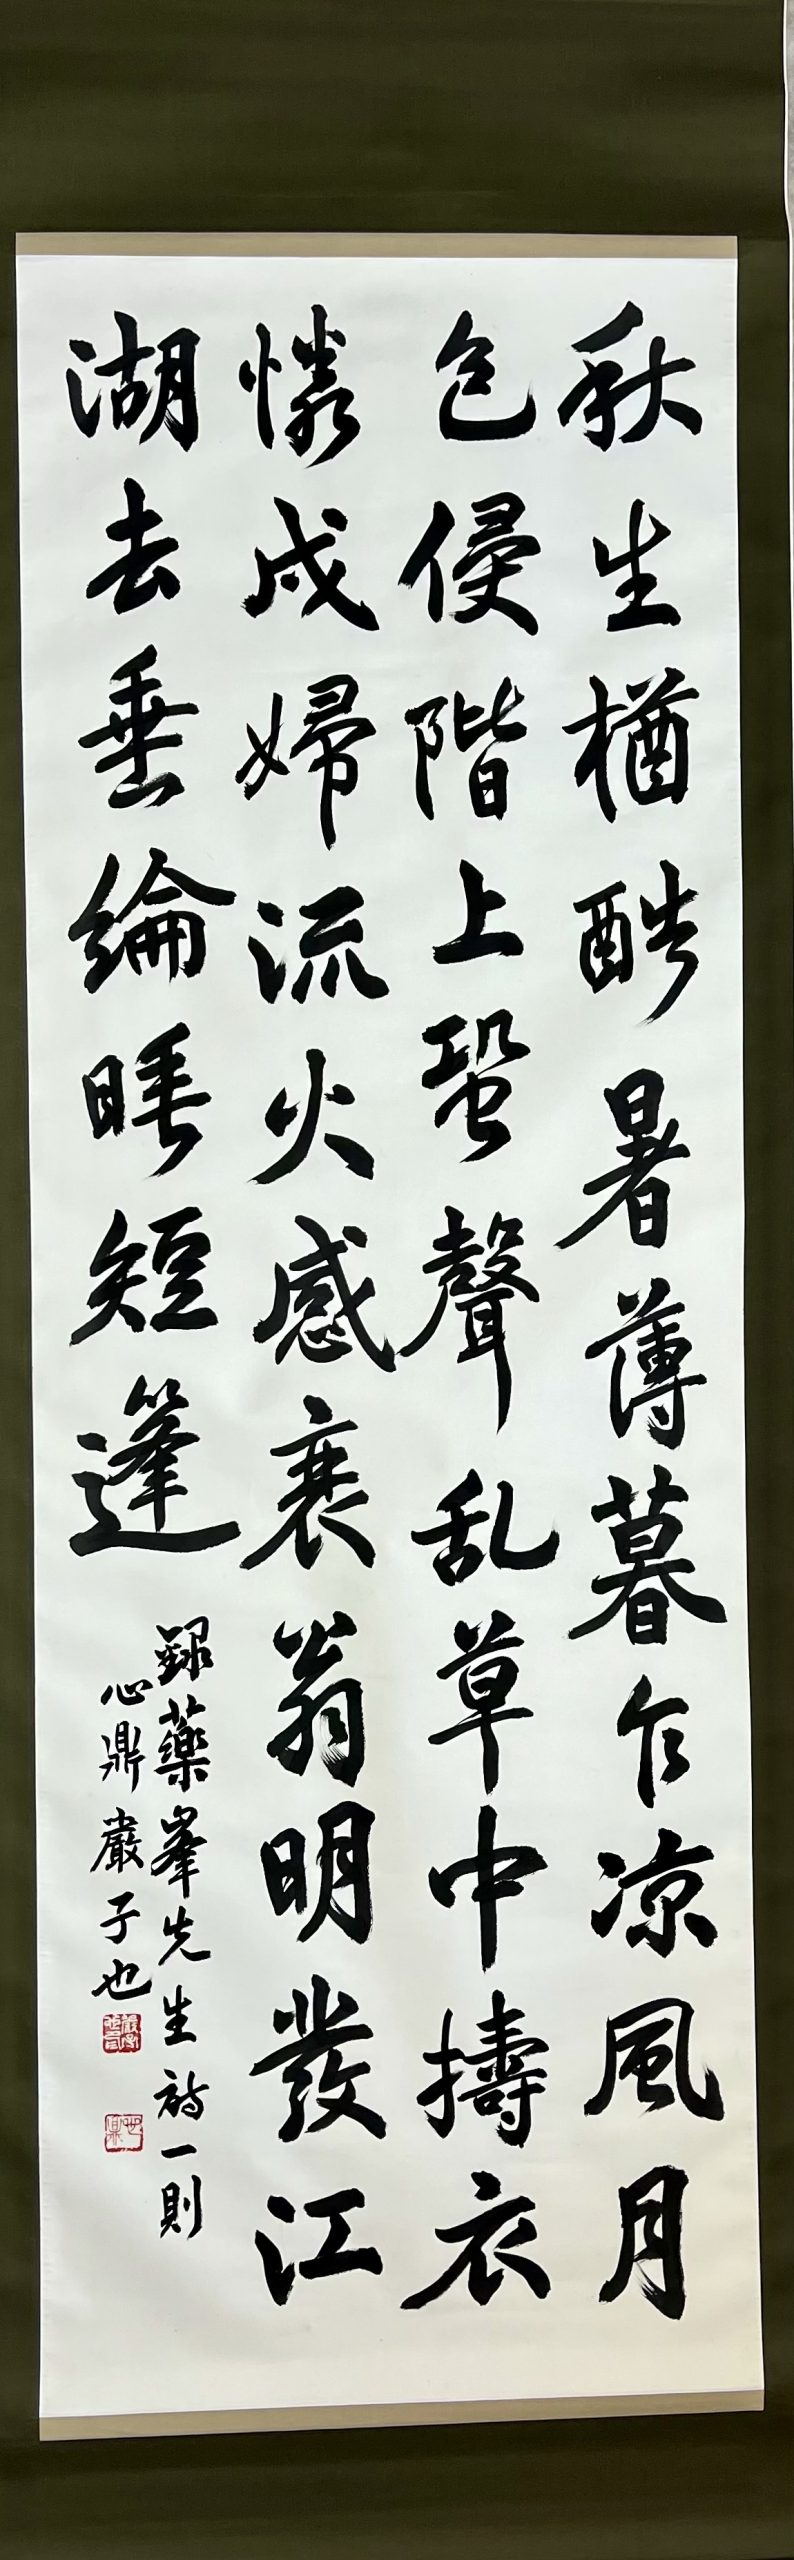 秋生楢酷暑薄暮乍凉風月
色侵階上蛩聲乱草中擣衣
憐戍婦流火感衰翁明發江
湖去垂綸睡短篷
録藥峯先生詩一則
心鼎嚴子也